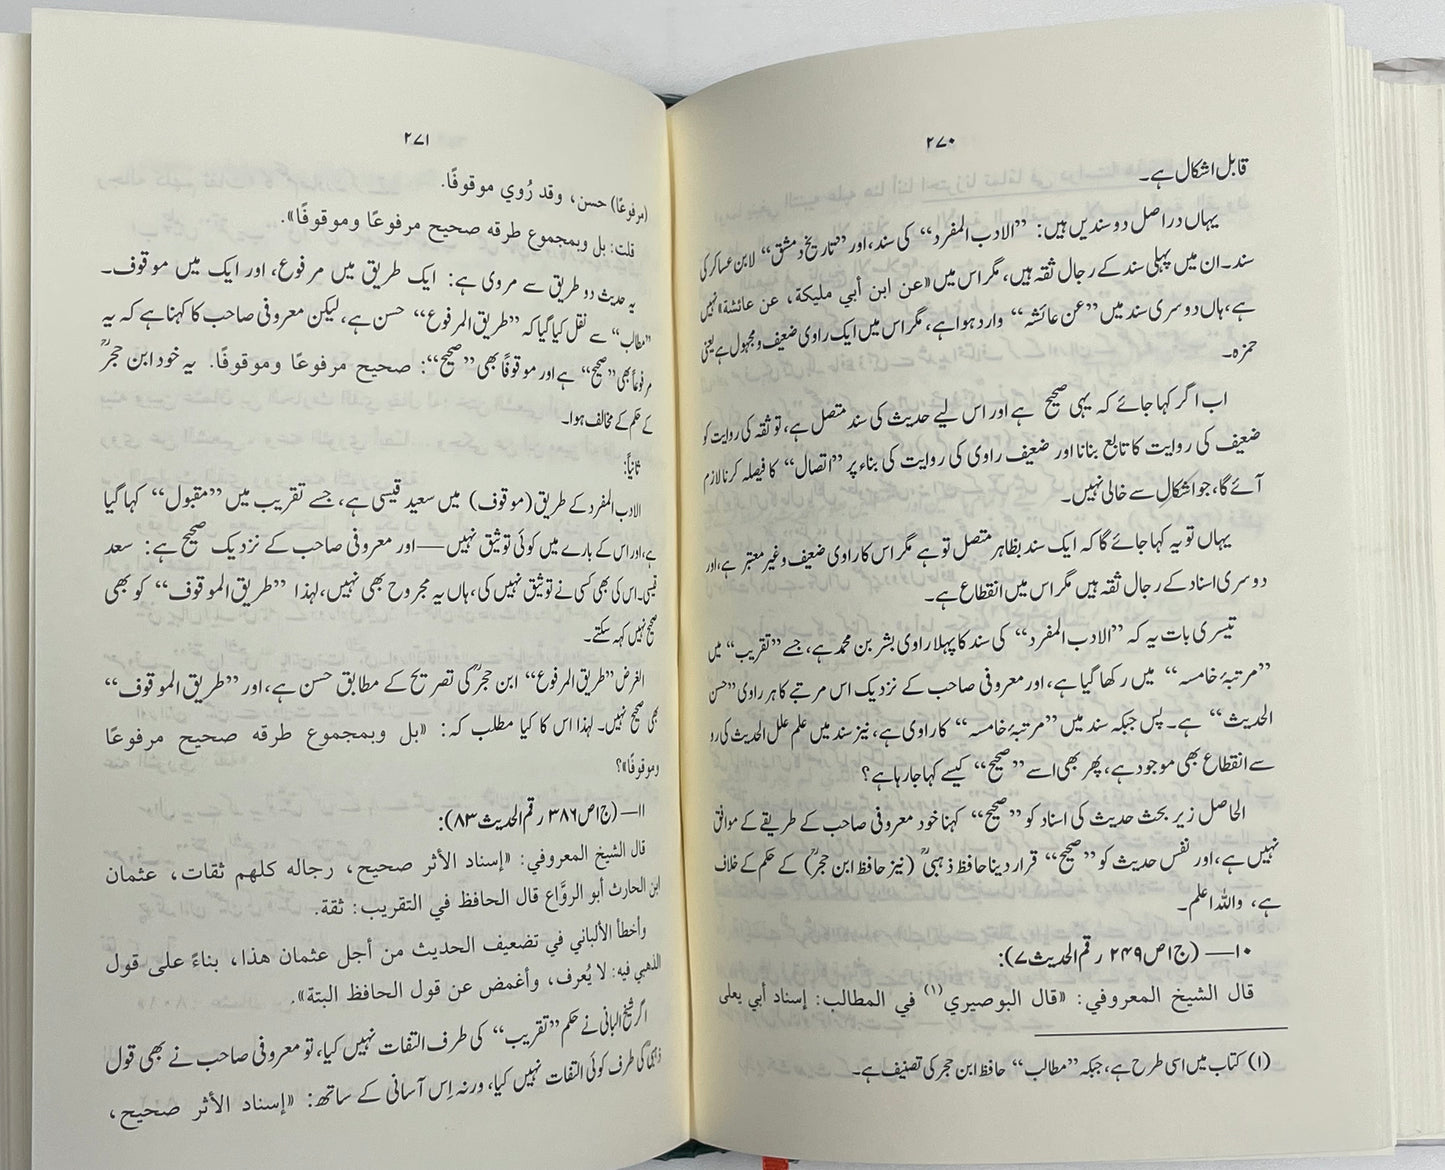 ۲۷۰
قابل اشکال ہے۔
یہاں دراصل دو سندیں ہیں: ”الادب المفرد“ کی سند، اور ”تاریخ دمشق“ لابن عساکر کی
سند۔ ان میں پہلی سند کے رجال ثقہ ہیں، مگر اس میں «عن ابن أبي مليكة، عن عائشة» نہیں
ہے، ہاں دوسری سند میں ”عن عائشہ“ وارد ہوا ہے، مگر اس میں ایک راوی ضعیف و مجہول ہے یعنی
حمزہ۔
اب اگر کہا جائے کہ یہی صحیح ہے اور اس لیے حدیث کی سند متصل ہے، تو ثقہ کی روایت کو
ضعیف کی روایت کا تابع بنانا اور ضعیف راوی کی روایت کی بناء پر ”اتصال“ کا فیصلہ کرنا لازم
آئے گا، جو اشکال سے خالی نہیں۔
یہاں تو یہ کہا جائے گا کہ ایک سند بظاہر متصل تو ہے مگر اس کا راوی ضعیف وغیر معتبر ہے، اور
دوسری اسناد کے رجال ثقہ ہیں مگر اس میں انقطاع ہے۔
تیسری بات یہ کہ ”الادب المفرد“ کی سند کا پہلا راوی بشر بن محمد ہے، جسے ”تقریب“ میں
”مرتبۂ خامسہ“ میں رکھا گیا ہے، اور معروفی صاحب کے نزدیک اس مرتبے کا ہر راوی ”حسن
الحدیث“ ہے۔ پس جبکہ سند میں ”مرتبۂ خامسہ“ کا راوی ہے، نیز سند میں علم علل الحدیث کی رو
سے انقطاع بھی موجود ہے، پھر بھی اسے ”صحیح“ کیسے کہا جا رہا ہے؟
الحاصل زیر بحث حدیث کی اسناد کو ”صحیح“ کہنا خود معروفی صاحب کے طریقے کے موافق
نہیں ہے، اور نفس حدیث کو ”صحیح“ قرار دینا حافظ ذہبیؒ (نیز حافظ ابن حجرؒ) کے حکم کے خلاف
ہے، واللہ اعلم۔
۱۰— (ج۱ ص۲۴۹ رقم الحدیث ۷):
قال الشيخ المعروفي: «قال البوصيري(۱) في المطالب: إسناد أبي يعلى
(۱) کتاب میں اسی طرح ہے، جبکہ ”مطالب“ حافظ ابن حجر کی تصنیف ہے۔
۲۷۱
(مرفوعًا) حسن، وقد رُوي موقوفًا.
قلت: بل وبمجموع طرقه صحيح مرفوعًا وموقوفًا».
یہ حدیث دو طریق سے مروی ہے: ایک طریق میں مرفوع، اور ایک میں موقوف۔
”مطالب“ سے نقل کیا گیا کہ ”طریق المرفوع“ حسن ہے، لیکن معروفی صاحب کا کہنا ہے کہ یہ
مرفوعاً بھی ”صحیح“ ہے اور موقوفاً بھی ”صحیح“: صحيح مرفوعًا وموقوفًا. یہ خود ابن حجرؒ
کے حکم کے مخالف ہوا۔
ثانیاً:
الادب المفرد کے طریق (موقوف) میں سعید قیسی ہے، جسے تقریب میں ”مقبول“ کہا گیا
ہے، اور اس کے بارے میں کوئی توثیق نہیں — اور معروفی صاحب کے نزدیک صحیح ہے: سعد
قیسی۔ اس کی بھی کسی نے توثیق نہیں کی، ہاں یہ مجروح بھی نہیں، لہذا ”طریق الموقوف“ کو بھی
صحیح نہیں کہہ سکتے۔
الغرض ”طریق المرفوع“ ابن حجرؒ کی تصریح کے مطابق حسن ہے، اور ”طریق الموقوف“
بھی صحیح نہیں۔ لہذا اس کا کیا مطلب کہ: «بل وبمجموع طرقه صحيح مرفوعًا
وموقوفًا»؟
۱۱— (ج۱ ص۳۸۶ رقم الحدیث ۸۳):
قال الشيخ المعروفي: «إسناد الأثر صحيح، رجاله كلهم ثقات، عثمان
ابن الحارث أبو الروَّاع قال الحافظ في التقريب: ثقة.
وأخطأ الألباني في تضعيف الحديث من أجل عثمان هذا، بناءً على قول
الذهبي فيه: لا يُعرف، وأغمض عن قول الحافظ البتة».
اگر شیخ البانی نے حکم ”تقریب“ کی طرف التفات نہیں کیا، تو معروفی صاحب نے بھی قول
ذہبیؒ کی طرف کوئی التفات نہیں کیا، ورنہ اِس آسانی کے ساتھ: «إسناد الأثر صحيح،